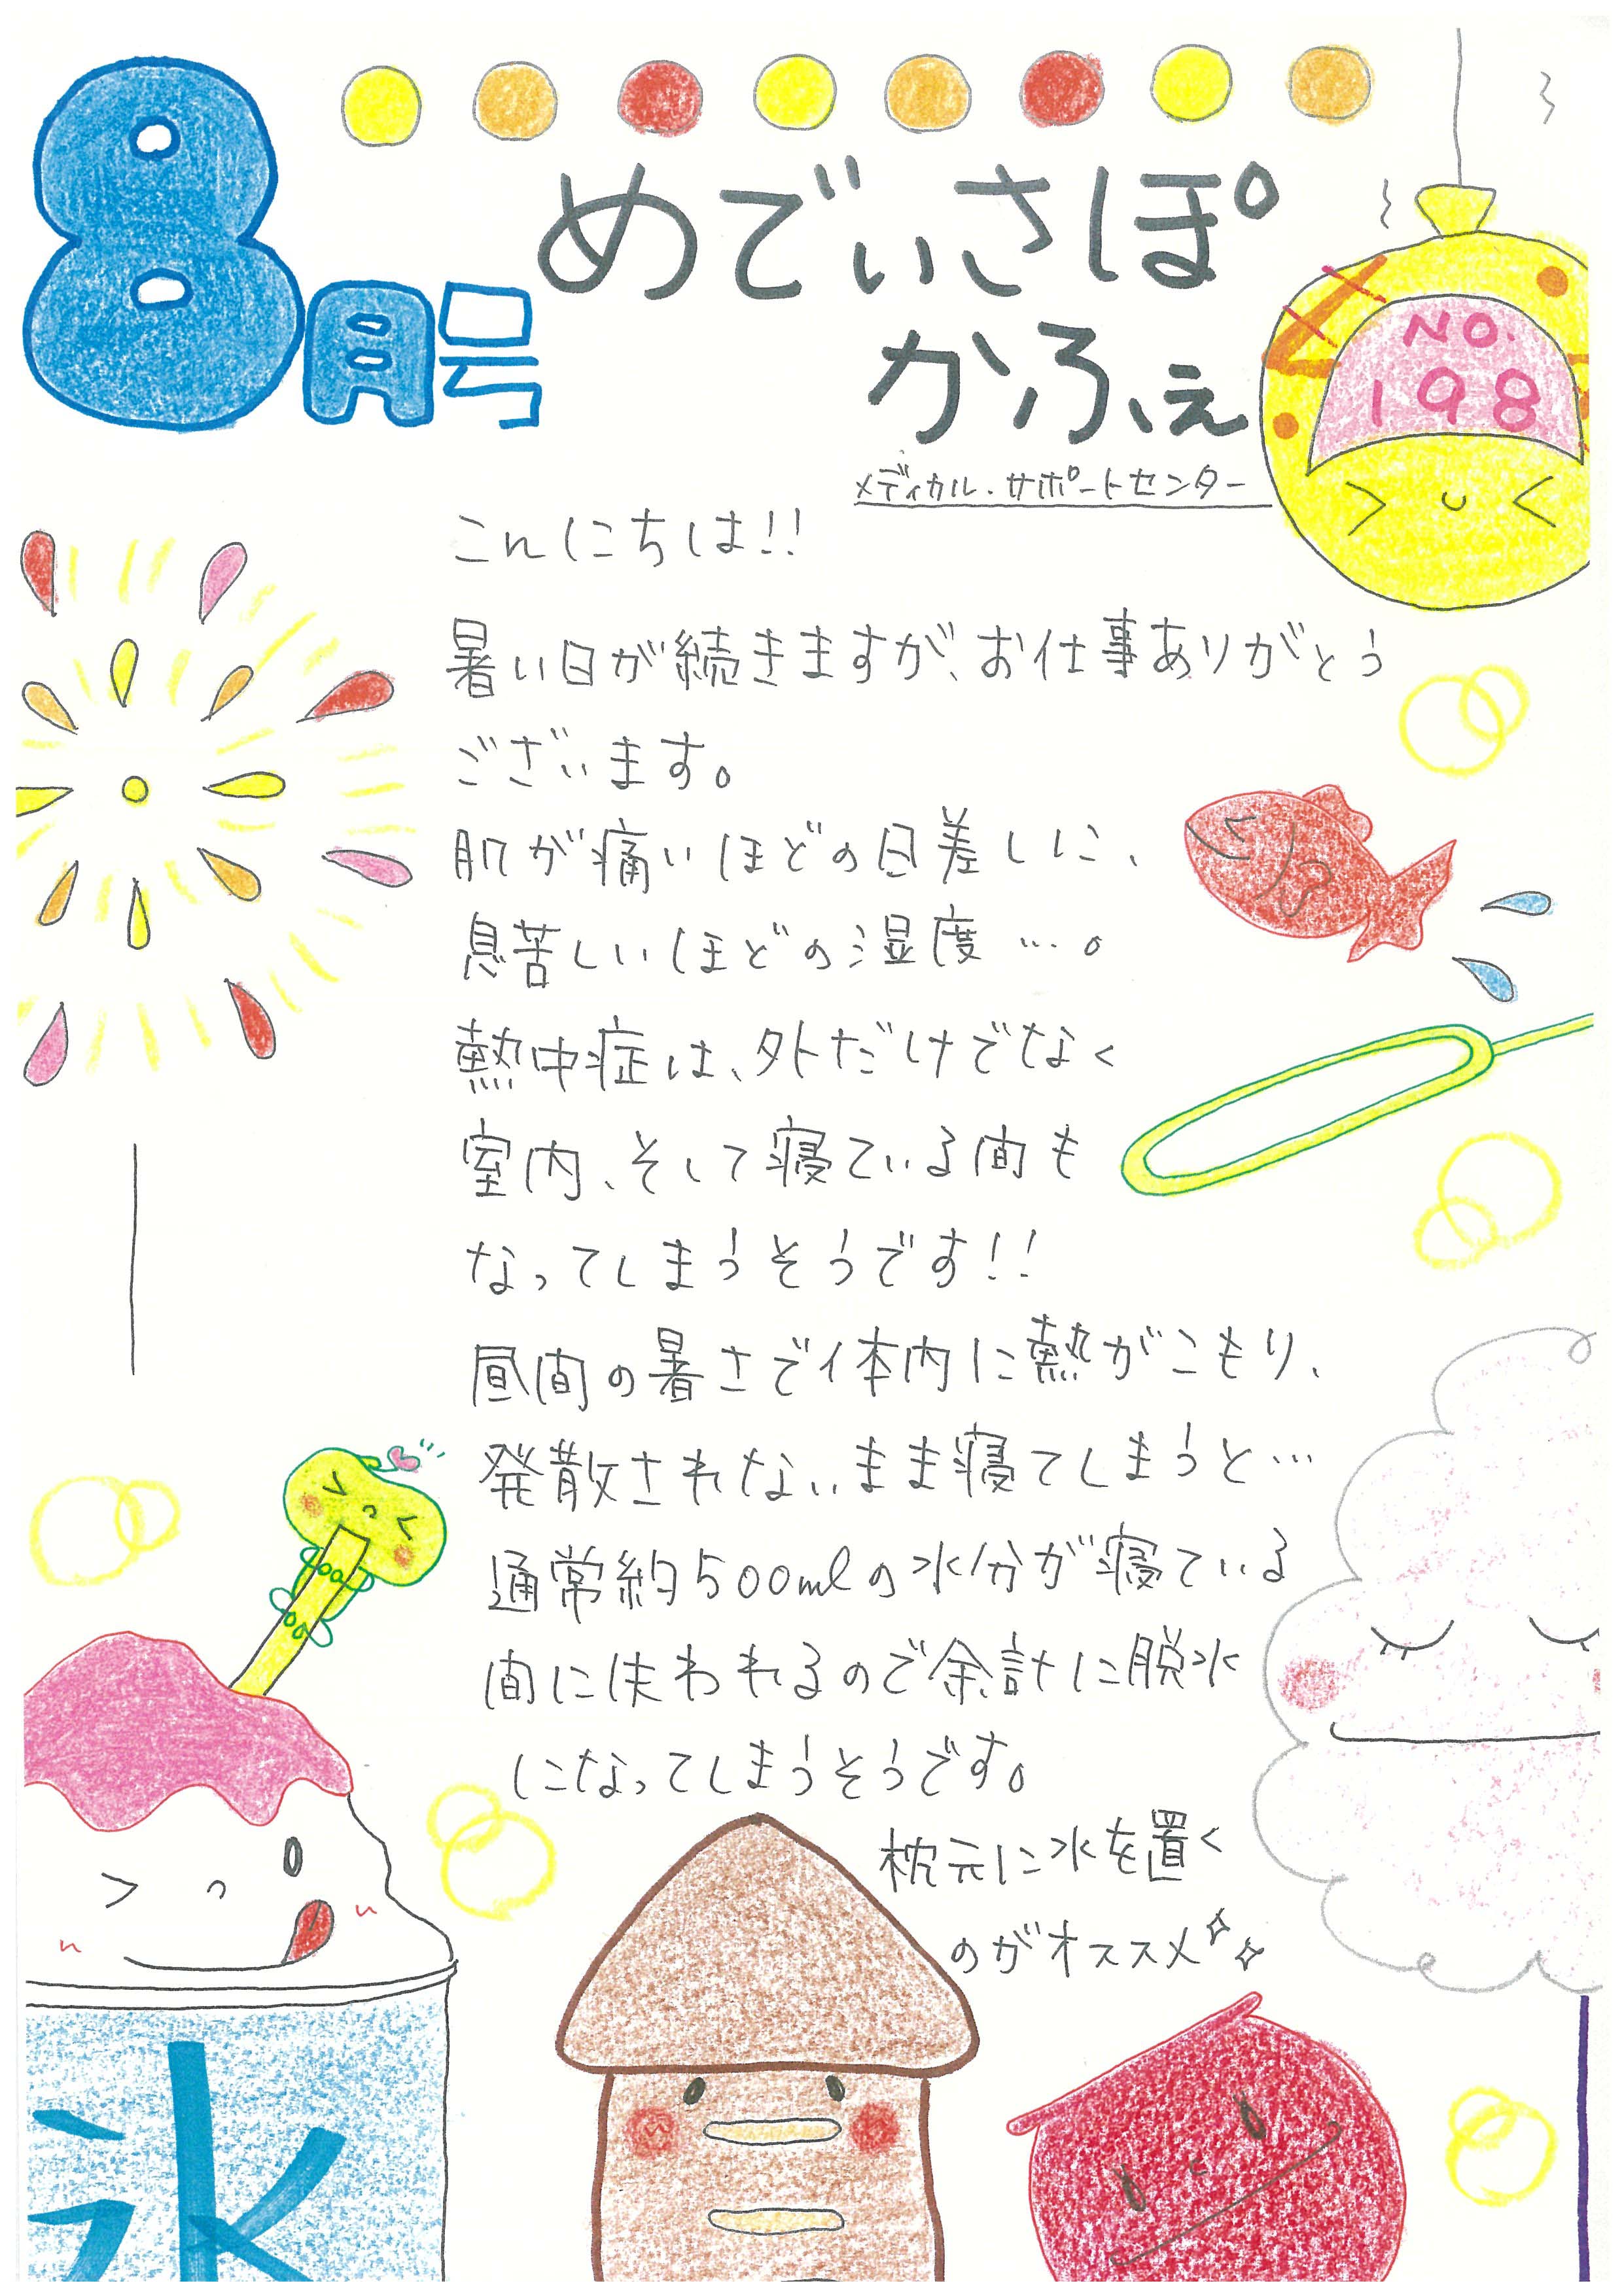 8月号
めでぃさぽ
かふぇ
NO.
198
メディカル・サポートセンター
こんにちは!!
暑い日が続きますが、お仕事ありがとう
ございます。
肌が痛いほどの日差しに、
息苦しいほどの湿度…。
熱中症は、外だけでなく
室内、そして寝ている間も
なってしまうそうです!!
昼間の暑さで体内に熱がこもり、
発散されないまま寝てしまうと…
通常約500mlの水分が寝ている
間に失われるので余計に脱水
になってしまうそうです。
枕元に水を置く
のがオススメ
氷